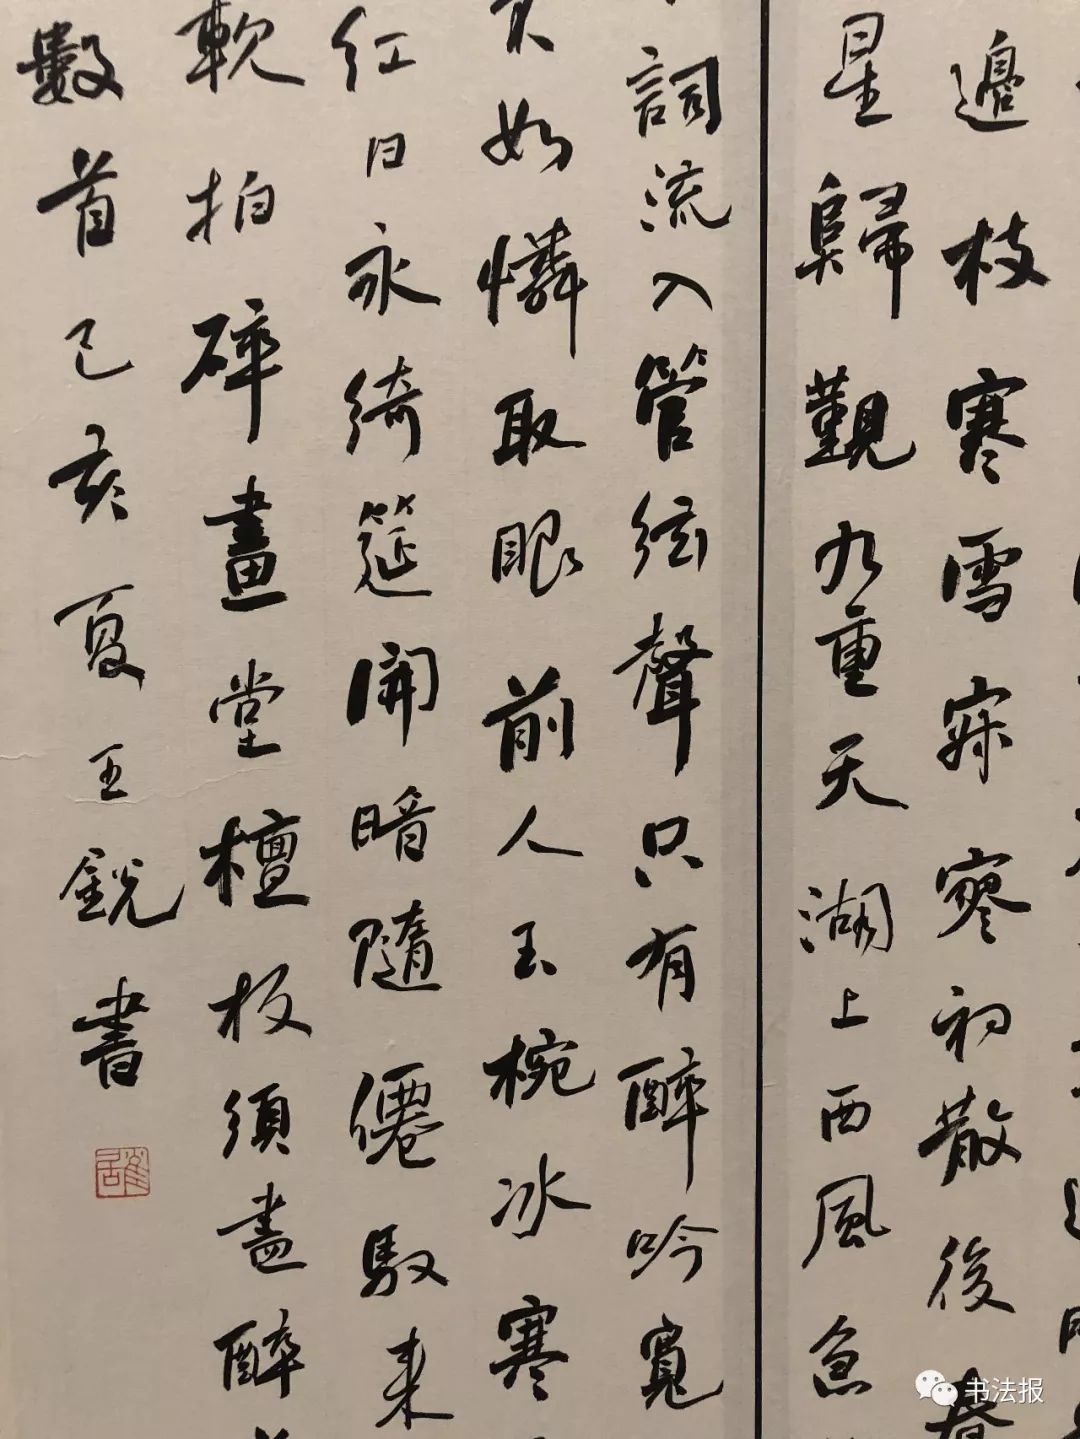 邊枝寒雪寂寥初散後春
星歸觀九重天湖上西風急
詞流入管弦聲只有醉吟寬
不如憐取眼前人玉椀冰寒
紅日永綺筵開暗隨僊馭来
軟拍碎畫堂檀板須盡醉
數首己亥夏王銳書
书法报